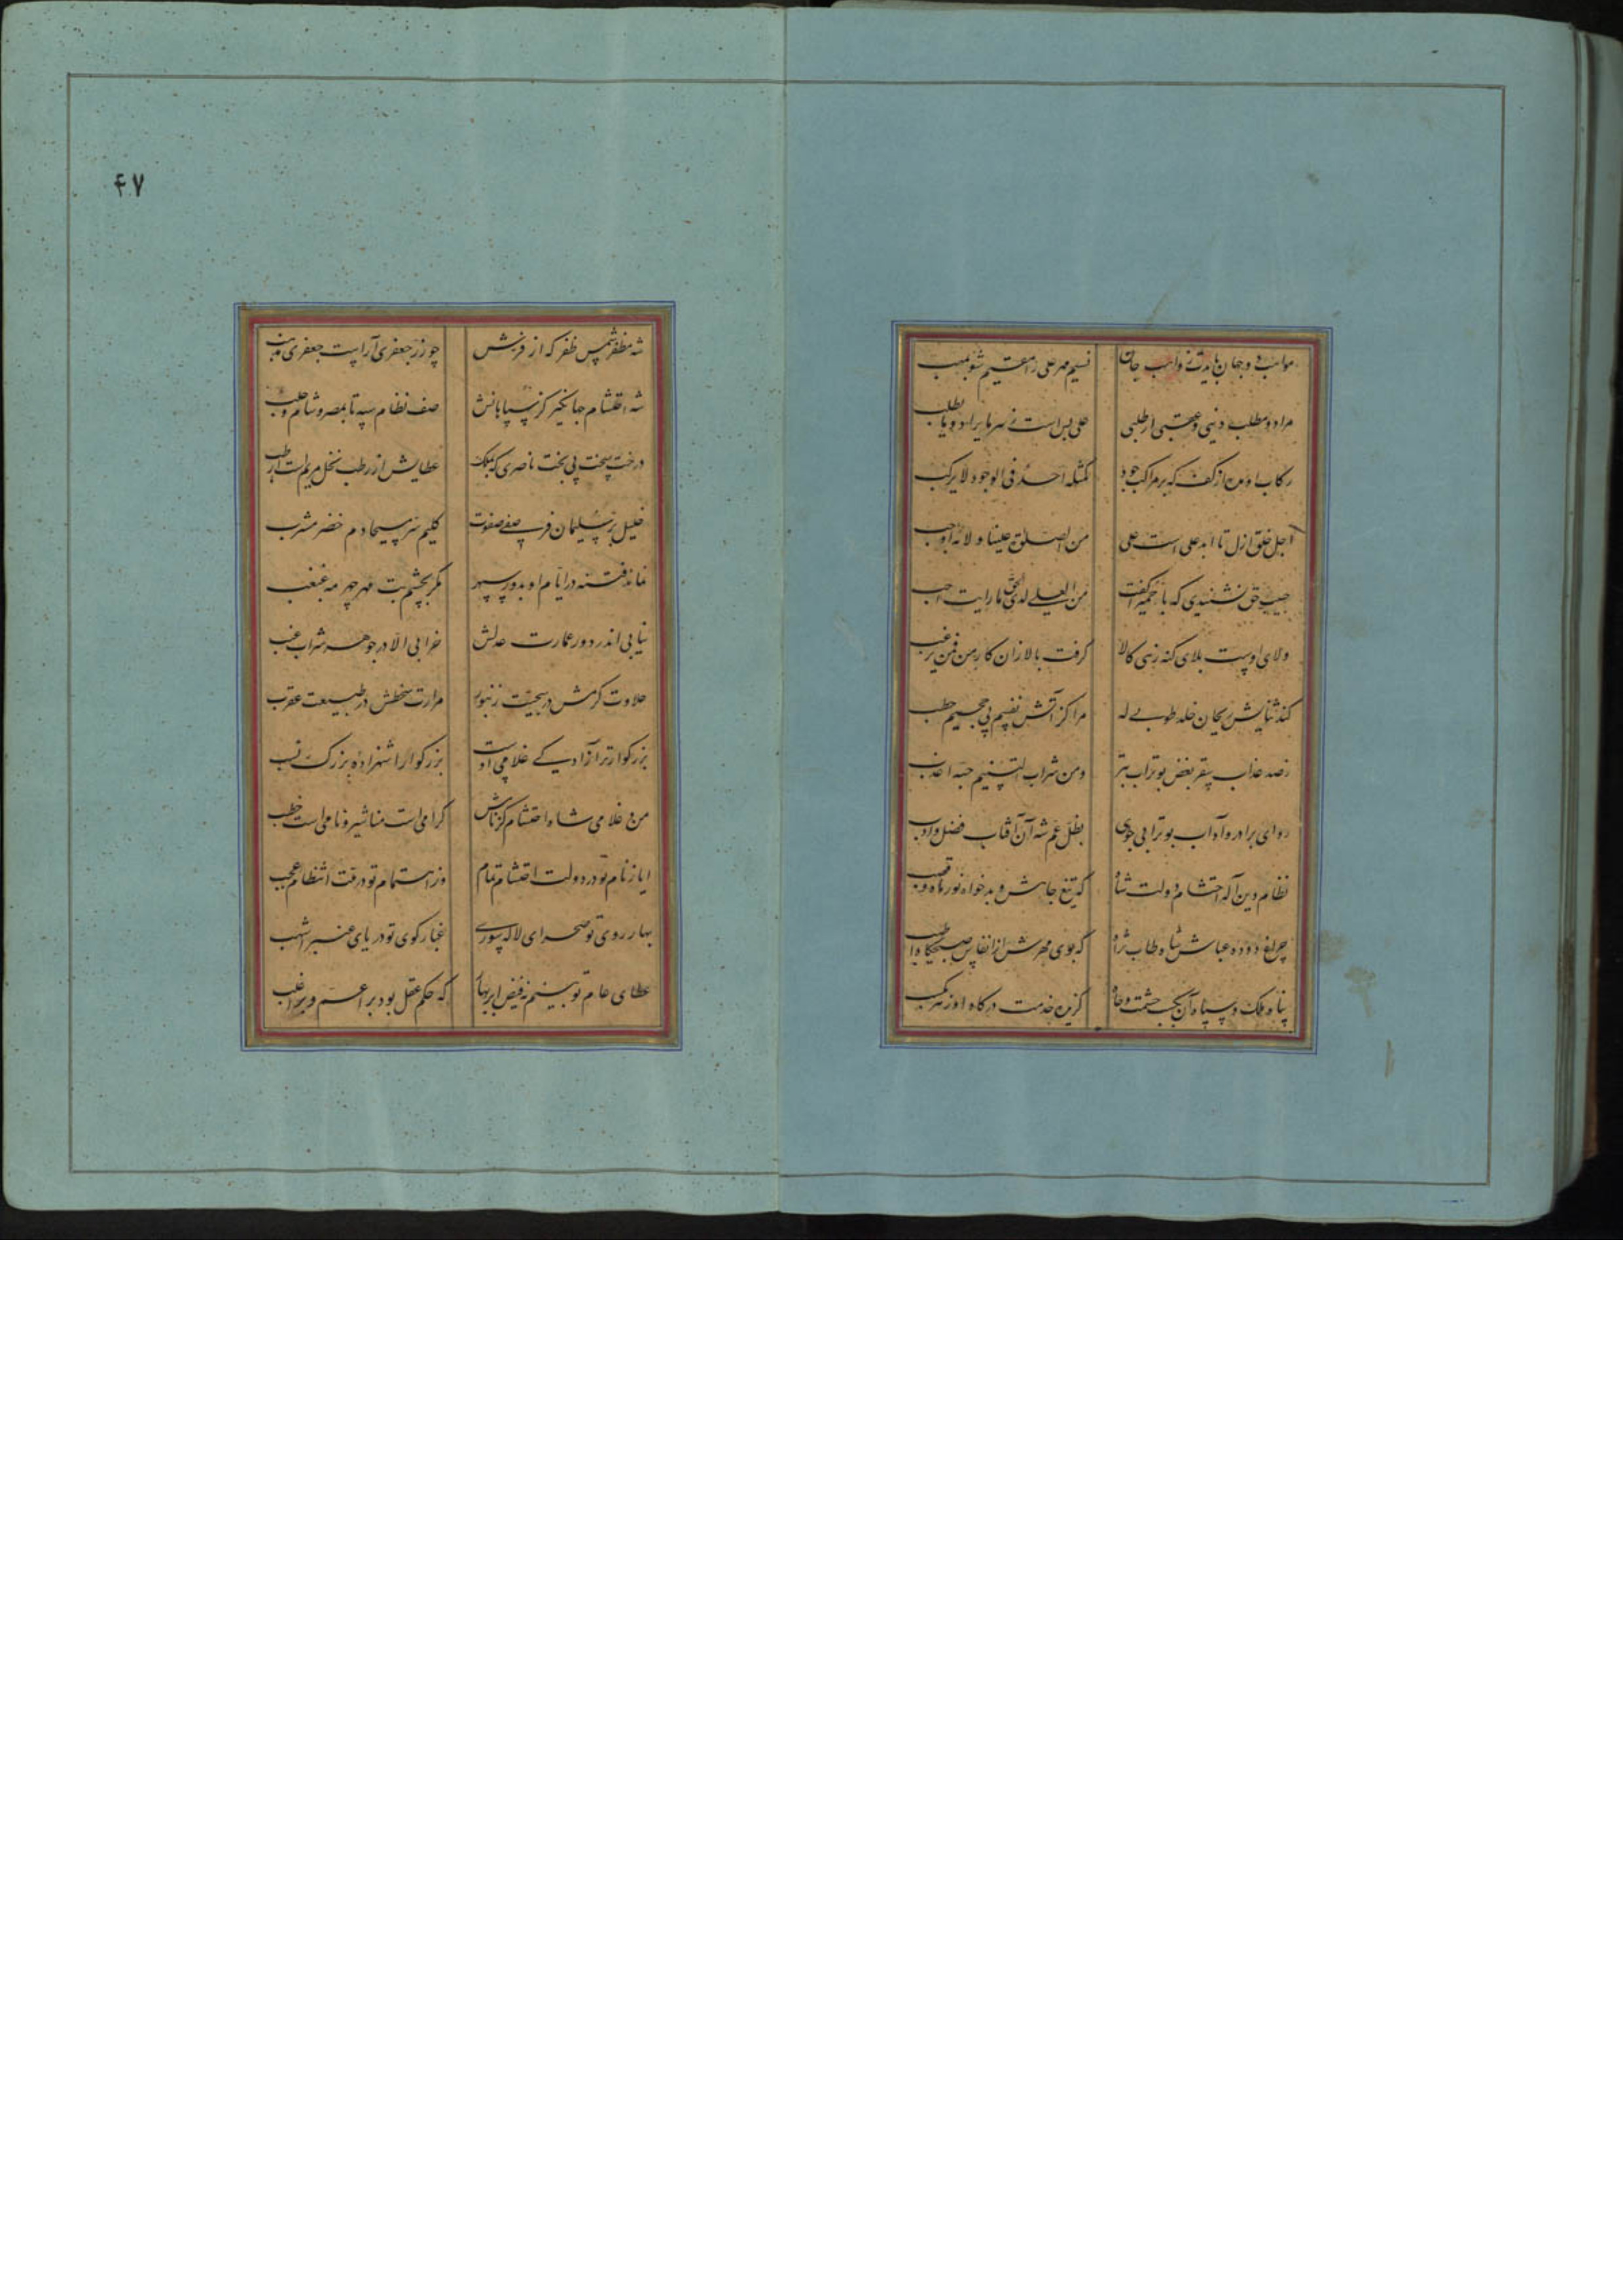 مواهب دو جهان بایدت ز واهب جان نسیم مهر علی را مقیم شو بمهب
مراد و مطلب دنیی و عقبی ار طلبی علی بس است ز سرمایه مراد و بیا بطلب
رکاب او من از کف که بر مراکب جود کمثله احد فی الوجود لا یرکب
اجل خلق ازل تا ابد علی است علی من الصلوة علینا ولائه اوجب
حبیب حق نشنیدی که با حمیرا گفت من العلی لدی الحق ما رایت احب
ولای اوست بلای گنه زنی کالا گرفت بالا زان کار من فمن یرغب
کند ثنایش ریحان خلد طوبی له مرا کز آتش نفسیم پی جحیم حطب
ز صد عذاب سقر بغض بوتراب بتر ومن شراب التسنیم حبه اعذب
رو ای برادر و آداب بوترابی جوی بظل عم شه آن آفتاب فضل و ادب
نظام دین اله احتشام دولت شاه که تیغ جاهش و بدخواه نور ماه و قصب
چراغ دوده عباس شاه طاب ثراه که بوی مهرش از انفاس صبحگاه اطیب
پناه ملک و سپاه آن بحسب حشمت و جاه گزین خدمت درگاه او ز مرکب
۴۷
شه مظفر شمس ظفر که از فر بش چو زر جعفری آراست جعفری مذهب
شه احتشام جهانگیر کز سپاهانش صف نظام سپه تا بمصر و شام و حلب
درخت سخت پی بخت ناصری که بملک عطایش از رطب نخل مریم است ارطب
خلیل بر سلیمان فر صفی صفوت کلیم سر مسیحا دم خضر مشرب
نماند فتنه در ایام او بدور سپهر مگر بچشم بت مهر چهر مه غبغب
نیابی اندر دور عمارت عدلش خرابی الا در جوهر شراب عنب
حلاوت کرمش در سجیت زنبور مرارت سخطش در طبیعت عقرب
بزرگوارتر از آدیی غلامی اوست بزرگوارا شهزاده بزرگ نسب
من و غلامی شاه احتشام کز نامش گرامی است مناشیر و نامی است خطب
ایا ز نام تو در دولت احتشام تمام وز اهتمام تو در فت انتظام عجب
بهار روی تو صحرای لاله سوری غبار کوی تو دریای عنبر اشهب
عطای عام تو بینیم نه فیض ابر بهار که حکم عقل بود بر اعم و بر اغلب